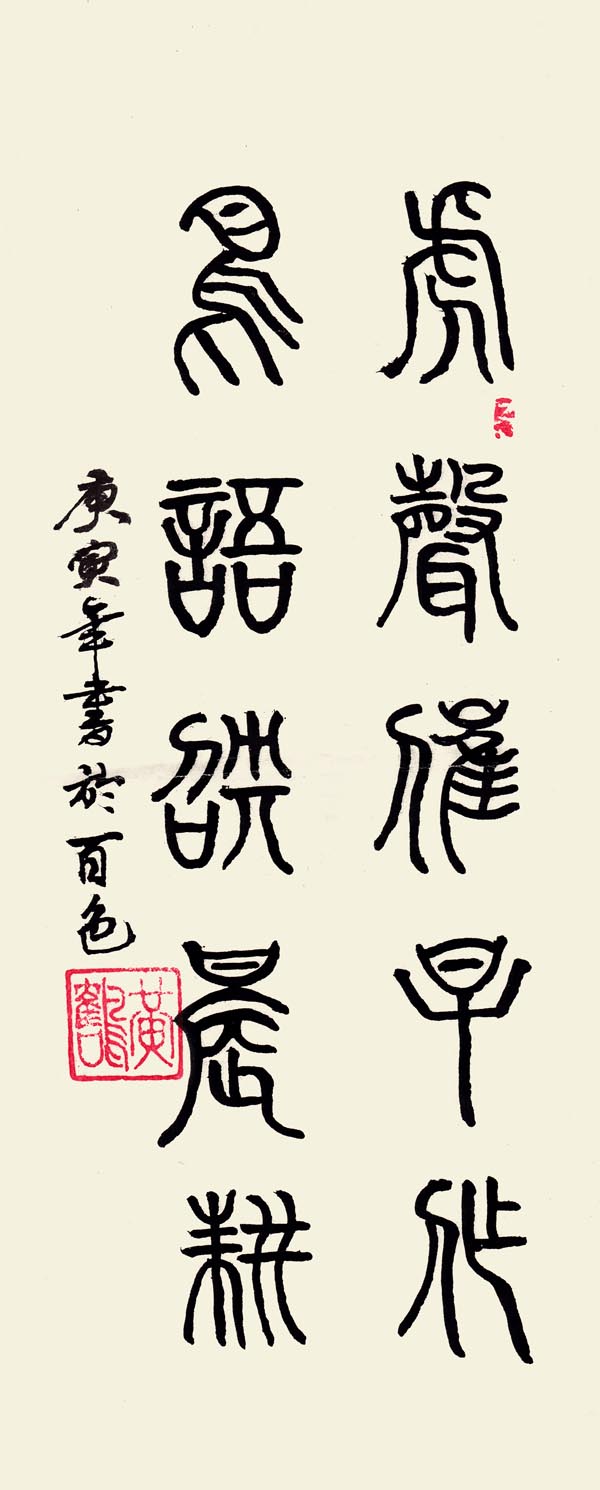 虎聲催早作
鳥語晨耕
庚寅年書於百色
黃鶴